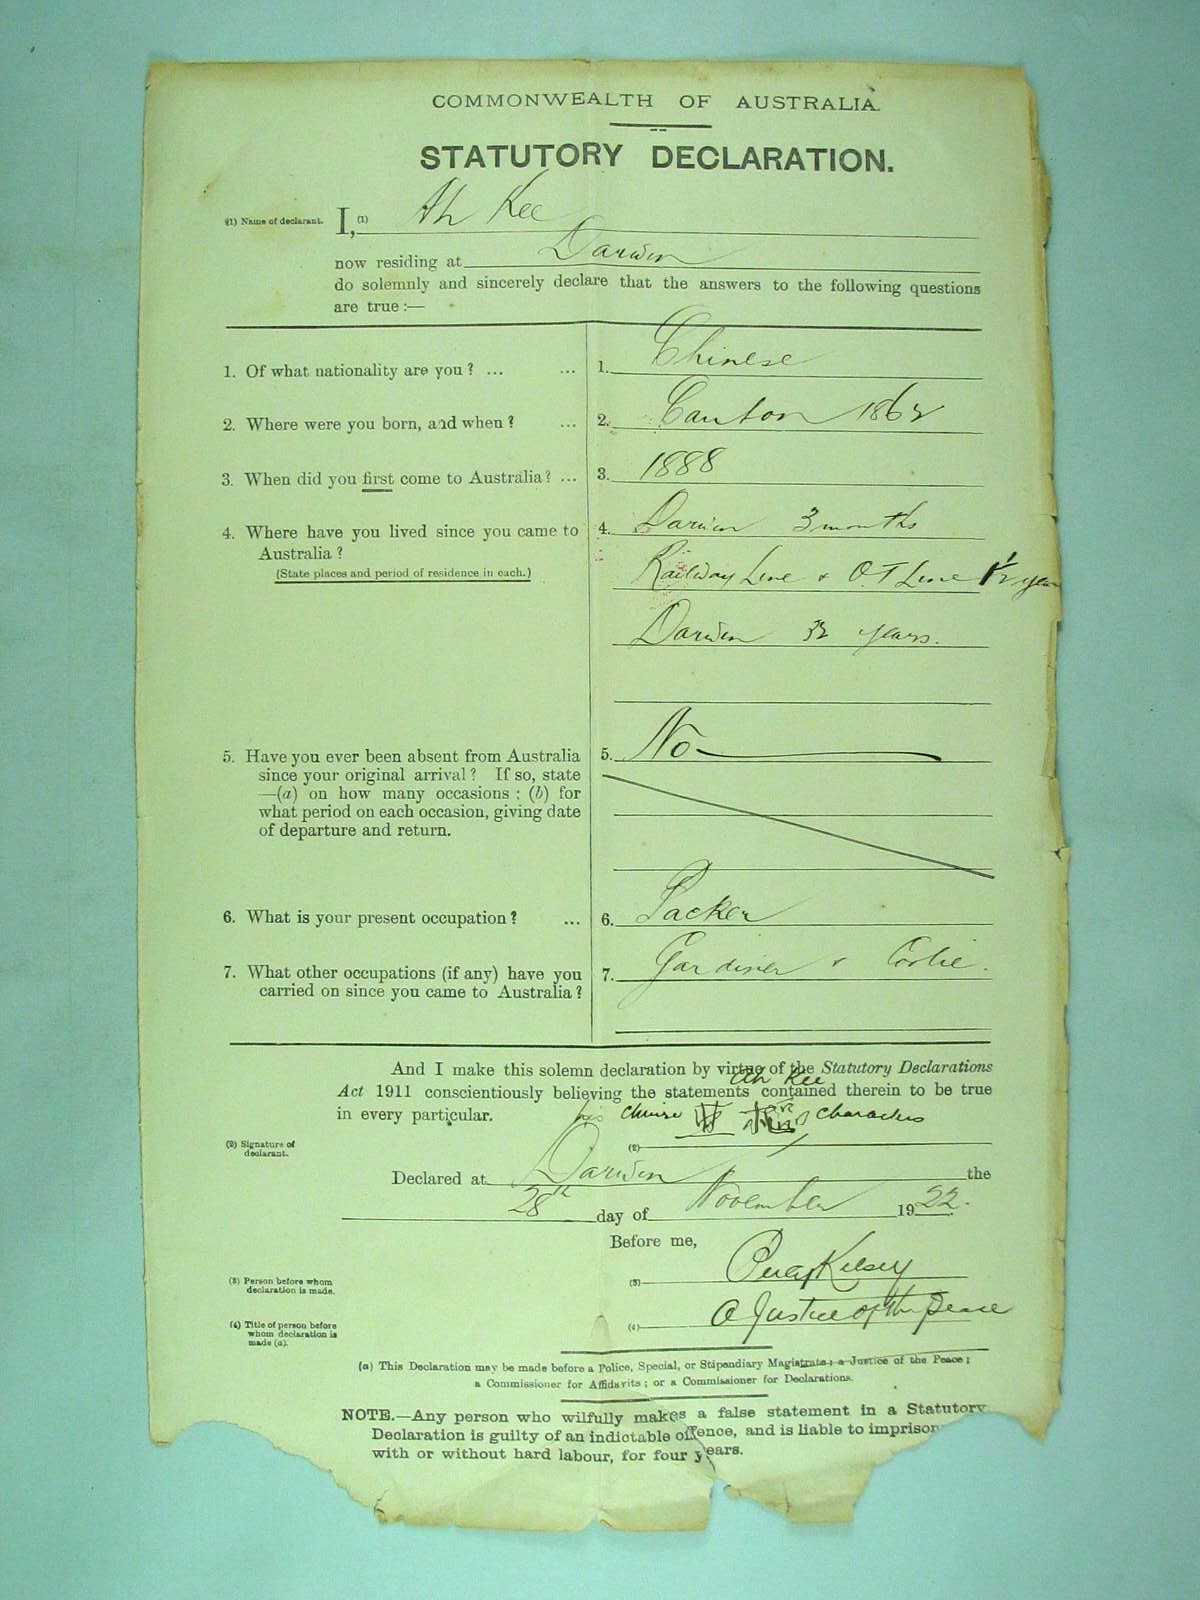 COMMONWEALTH OF AUSTRALIA.
STATUTORY DECLARATION.
(1) Name of declarant. I, (1) Ah Kee
now residing at Darwin
do solemnly and sincerely declare that the answers to the following questions
are true :—
1. Of what nationality are you ? ... ... 1. Chinese
2. Where were you born, and when ? ... 2. Canton 1862
3. When did you first come to Australia ? ... 3. 1888
4. Where have you lived since you came to 4. Darwin 3 months
Australia ?
(State places and period of residence in each.) Railway Line & O.T Line 1½ year
Darwin 32 years.
5. Have you ever been absent from Australia 5. No
since your original arrival ? If so, state
—(a) on how many occasions ; (b) for
what period on each occasion, giving date
of departure and return.
6. What is your present occupation ? ... 6. Packer
7. What other occupations (if any) have you 7. Gardiner & Coolie.
carried on since you came to Australia ?
And I make this solemn declaration by virtue of the Statutory Declarations
Ah Kee
Act 1911 conscientiously believing the statements contained therein to be true
in every particular. his Chinese characters
(2) Signature of
declarant. (2)
Declared at Darwin the
28th day of November 1922.
Before me,
(3) Person before whom
declaration is made. (3) Percy Kelsey
(4) Title of person before
whom declaration is
made (a). (4) A Justice of the Peace
(a) This Declaration may be made before a Police, Special, or Stipendiary Magistrate ; a Justice of the Peace ;
a Commissioner for Affidavits ; or a Commissioner for Declarations.
NOTE.—Any person who wilfully makes a false statement in a Statutory
Declaration is guilty of an indictable offence, and is liable to imprison
with or without hard labour, for four years.